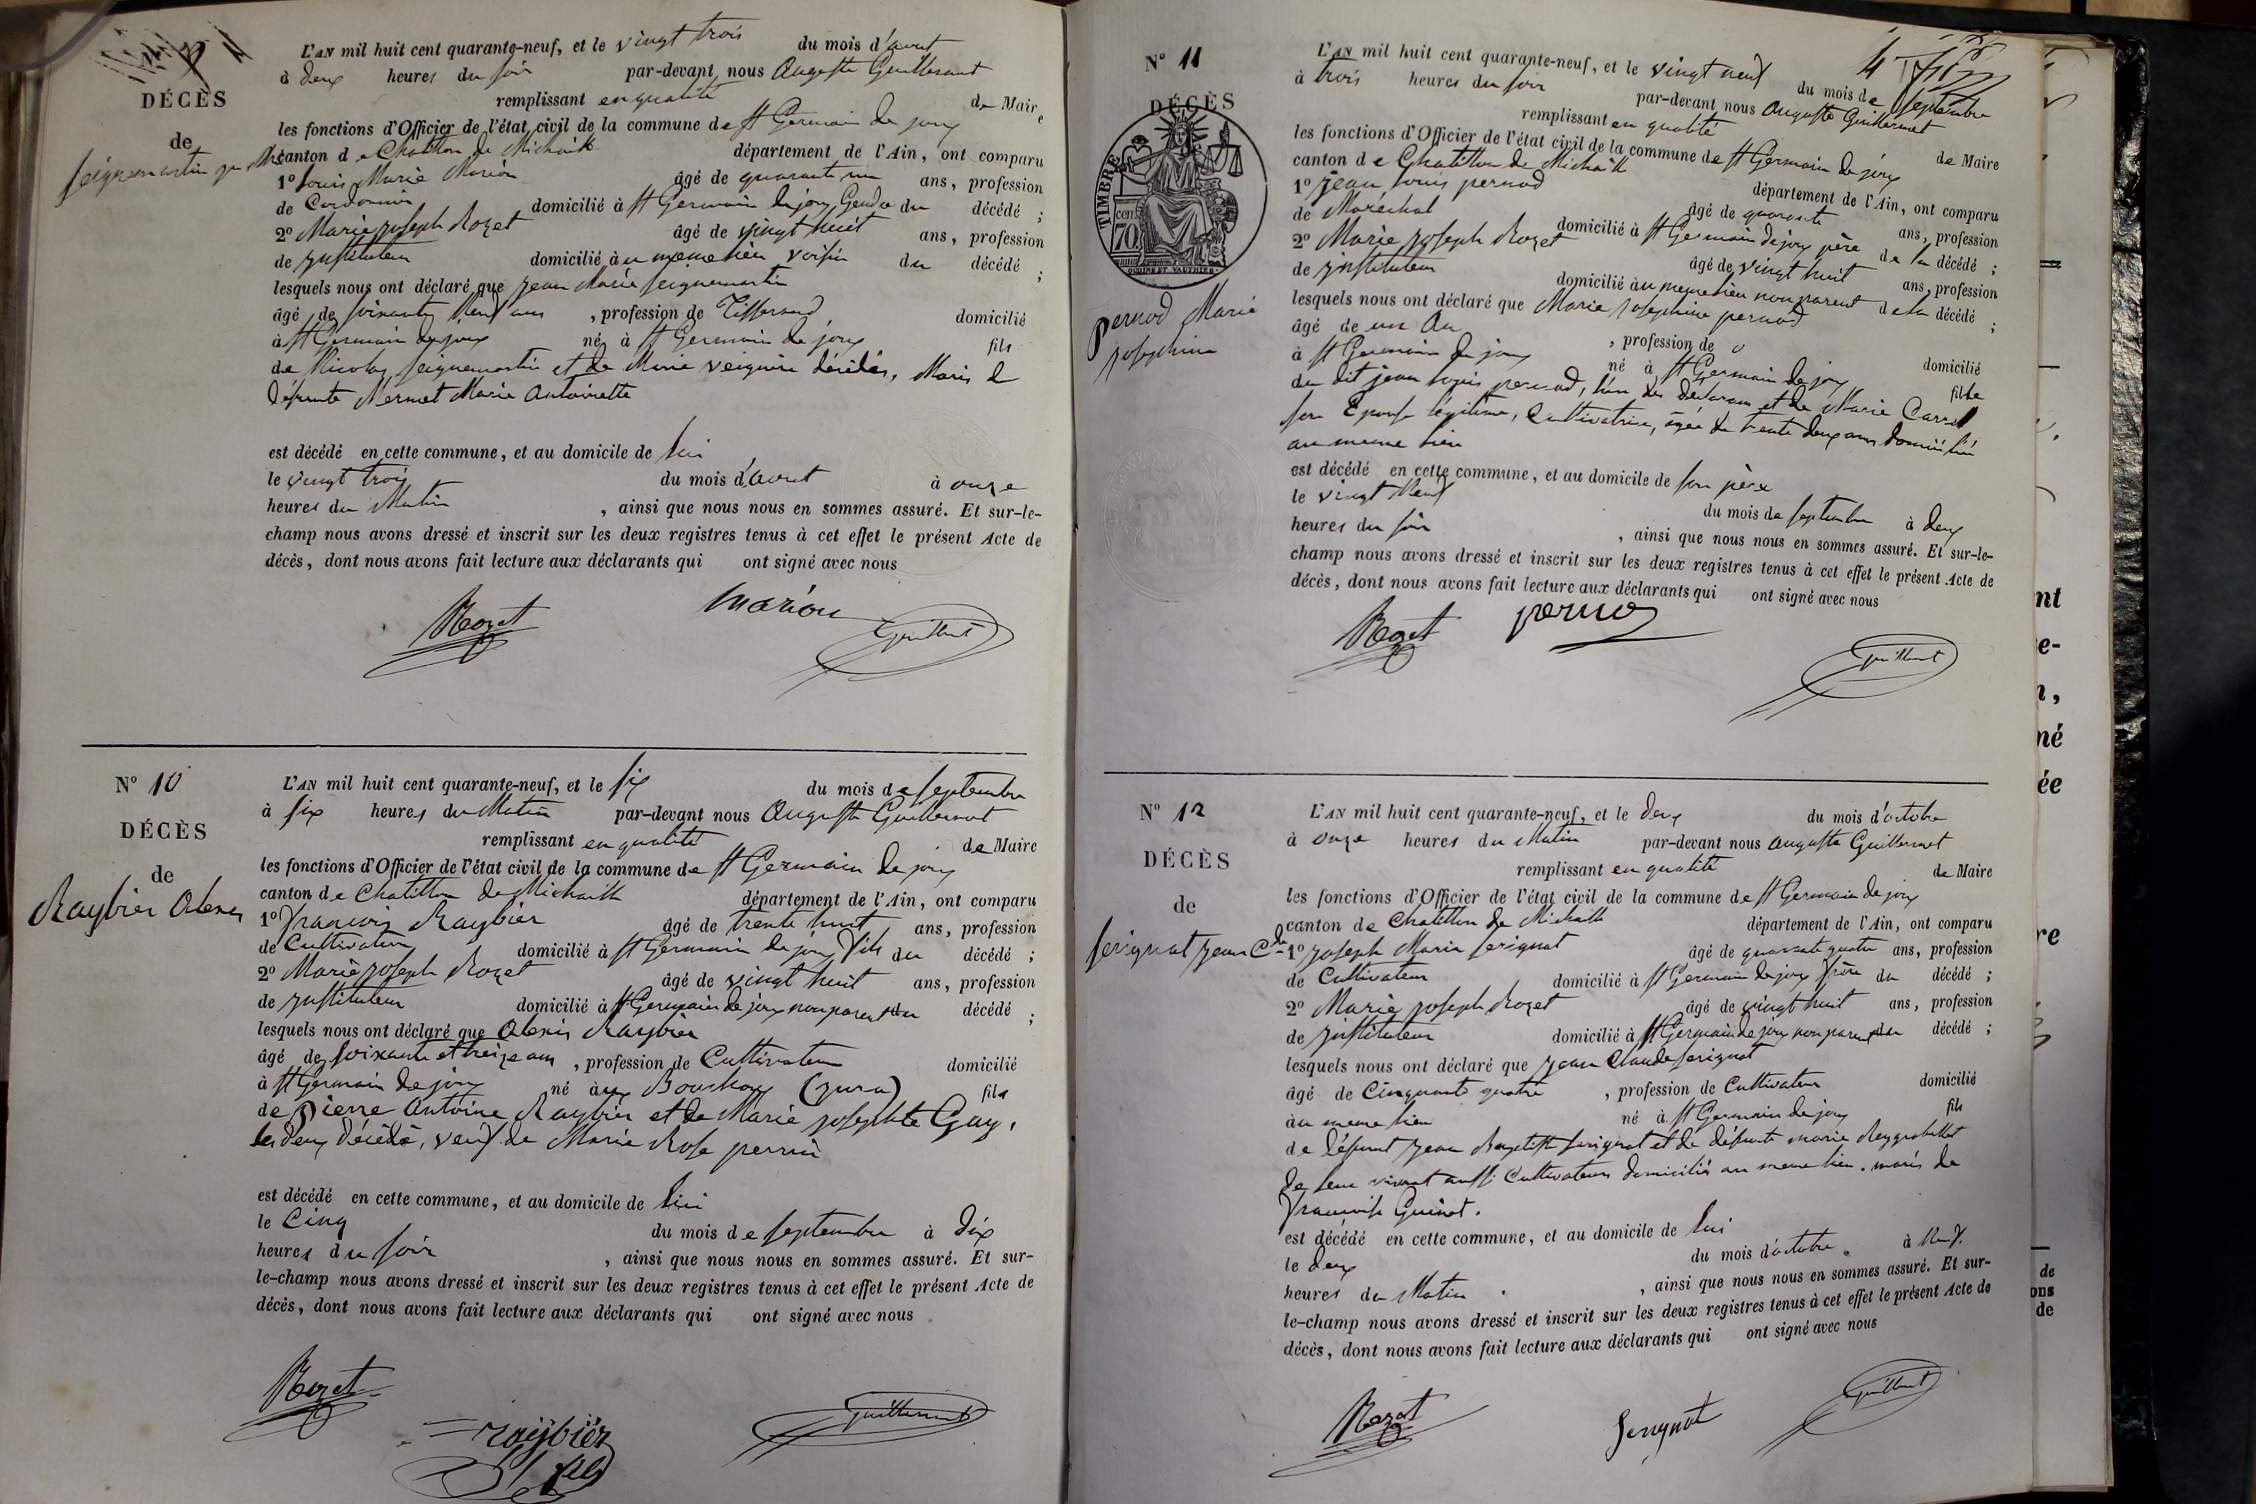 DÉCÈS
de
Seignemartin jn Mie
L'AN mil huit cent quarante-neuf, et le vingt trois du mois d'aout
à deux heures du soir par-devant nous Auguste Guillermet
remplissant en qualité de Maire
les fonctions d'Officier de l'état civil de la commune de St Germain de joux
canton de Chatillon de Michaille département de l'Ain, ont comparu
1º Louis Marie Marion âgé de quarante un ans, profession
de Cordonnier domicilié à St Germain de joux, Gendre du décédé ;
2º Marie joseph Rozet âgé de vingt huit ans, profession
de jnstituteur domicilié au meme lieu voisin du décédé ;
lesquels nous ont déclaré que jean Marie Seignemartin
âgé de soixante Neuf ans , profession de Tisserand domicilié
à St Germain de joux né à St Germain de joux fils
de Nicolas Seignemartin et de Marie décédés, Maris de
défunte Mermet Marie Antoinette
est décédé en cette commune, et au domicile de lui
le vingt trois du mois d'aout à onze
heures du Matin , ainsi que nous nous en sommes assuré. Et sur-le-
champ nous avons dressé et inscrit sur les deux registres tenus à cet effet le présent Acte de
décès, dont nous avons fait lecture aux déclarants qui ont signé avec nous
Rozet Marion Guillermet
Nº 10
DÉCÈS
de
Raybier Alexis
L'AN mil huit cent quarante-neuf, et le six du mois de septembre
à six heures du Matin par-devant nous Auguste Guillermet
remplissant en qualité de Maire
les fonctions d'Officier de l'état civil de la commune de St Germain de joux
canton de Chatillon de Michaille département de l'Ain, ont comparu
1º françois Raybier âgé de trente huit ans, profession
de Cultivateur domicilié à St Germain de joux fils du décédé ;
2º Marie joseph Rozet âgé de vingt huit ans, profession
de jnstituteur domicilié à St Germain de joux non parent du décédé ;
lesquels nous ont déclaré que Alexis Raybier
âgé de soixante et treize ans , profession de Cultivateur domicilié
à St Germain de joux né aux Bouchoux (jura) fils
de pierre Antoine Raybier et de Marie josephte Gay,
les deux décédés, veuf de Marie Rose perrin
est décédé en cette commune, et au domicile de lui
le Cinq du mois de septembre à dix
heures du soir , ainsi que nous nous en sommes assuré. Et sur-
le-champ nous avons dressé et inscrit sur les deux registres tenus à cet effet le présent Acte de
décès, dont nous avons fait lecture aux déclarants qui ont signé avec nous
Rozet Guillermet
raijbiér
Nº 11
DÉCÈS
TIMBRE
cen
70
Pernod Marie
josephine
L'AN mil huit cent quarante-neuf, et le vingt neuf du mois de septembre
à trois heures du soir par-devant nous Auguste Guillermet
remplissant en qualité de Maire
les fonctions d'Officier de l'état civil de la commune de St Germain de joux
canton de Chatillon de Michaille département de l'Ain, ont comparu
1º jean Louis pernod âgé de quarante ans, profession
de Maréchal domicilié à St Germain de joux père de la décédé ;
2º Marie joseph Rozet âgé de vingt huit ans, profession
de jnstituteur domicilié au meme lieu non parent de la décédé ;
lesquels nous ont déclaré que Marie josephine pernod
âgé de un An , profession de 0 domicilié
à St Germain de joux né à St Germain de joux fille
du dit jean Louis pernod, l'un des déclarans et de Marie Carrel
son Epouse légitime, Cultivatrice, agée de trente deux ans domicilié
au meme lieu
est décédé en cette commune, et au domicile de son père
le vingt Neuf du mois de septembre à deux
heures du soir , ainsi que nous nous en sommes assuré. Et sur-le-
champ nous avons dressé et inscrit sur les deux registres tenus à cet effet le présent Acte de
décès, dont nous avons fait lecture aux déclarants qui ont signé avec nous
Rozet pernod Guillermet
Nº 12
DÉCÈS
de
Serignat jean Cde
L'AN mil huit cent quarante-neuf, et le deux du mois d'octobre
à onze heures du Matin par-devant nous Auguste Guillermet
remplissant en qualité de Maire
les fonctions d'Officier de l'état civil de la commune de St Germain de joux
canton de Chatillon de Michaille département de l'Ain, ont comparu
1º joseph Marie Serignat âgé de quarante quatre ans, profession
de Cultivateur domicilié à St Germain de joux frère du décédé ;
2º Marie joseph Rozet âgé de vingt huit ans, profession
de jnstituteur domicilié à St Germain de joux non parent du décédé ;
lesquels nous ont déclaré que jean Claude Serignat
âgé de Cinquante quatre , profession de Cultivateur domicilié
au meme lieu né à St Germain de joux fils
de défunt jean Baptiste Serignat et de défunte marie Reygrobellet
de leur vivant aussi Cultivateurs domiciliés au meme lieu. maris de
françoise Guinet.
est décédé en cette commune, et au domicile de lui
le deux du mois d'octobre à Neuf
heures du Matin , ainsi que nous nous en sommes assuré. Et sur-
le-champ nous avons dressé et inscrit sur les deux registres tenus à cet effet le présent Acte de
décès, dont nous avons fait lecture aux déclarants qui ont signé avec nous
Rozet Serignat Guillermet